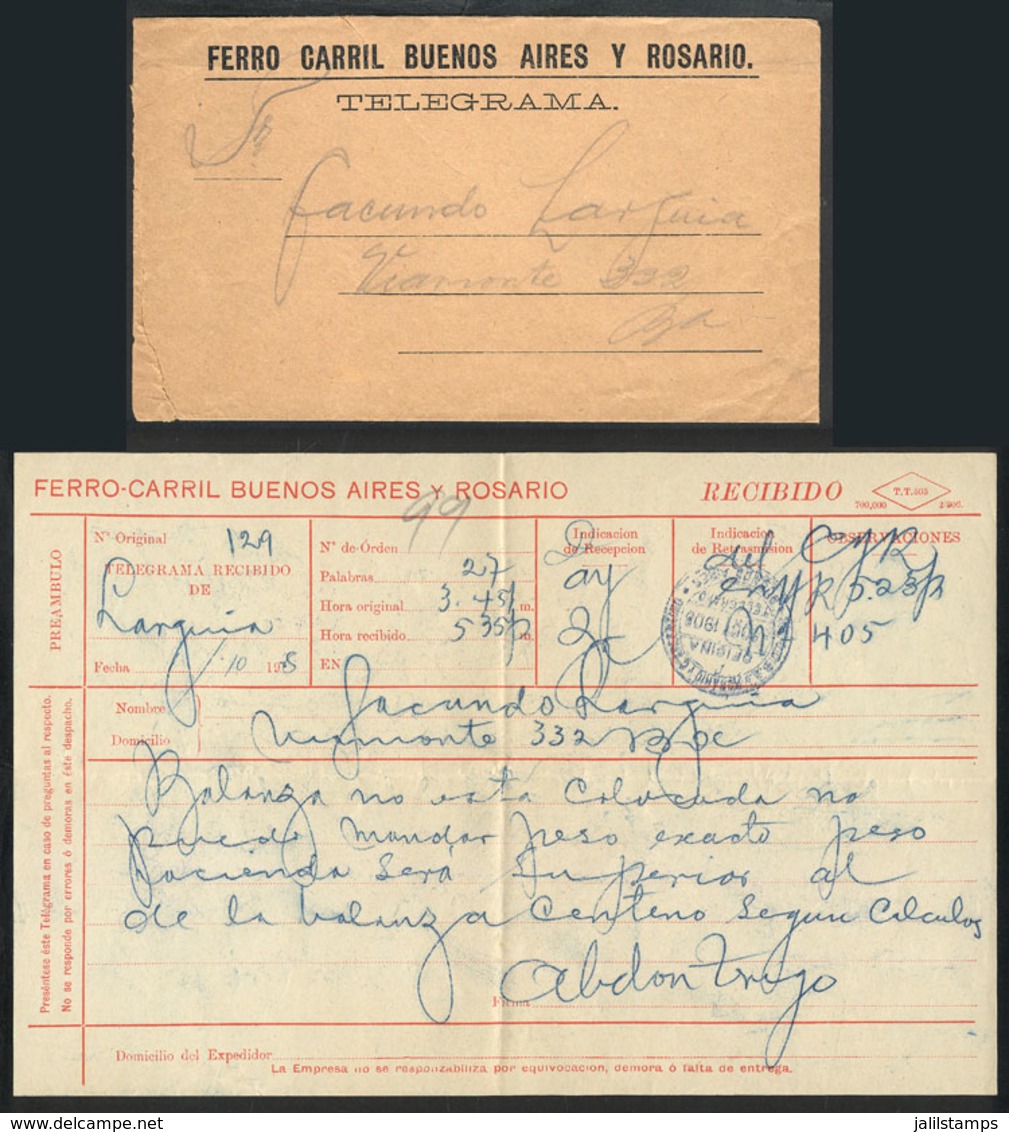 FERRO CARRIL BUENOS AIRES Y ROSARIO.
TELEGRAMA.
Sr.
Facundo Larguia
Viamonte 332
Ba
FERRO-CARRIL BUENOS AIRES Y ROSARIO
RECIBIDO
T.T.405
700,000
99
PREÁMBULO
No Original 129
TELEGRAMA RECIBIDO
DE
Larguia
Fecha 1/10 1908
Nº de Órden
Palabras 27
Hora original 3.45 p m.
Hora recibido 5 35 p m.
EN
Indicacion
de Recepcion
Indicacion
de Retrasmision
OBSERVACIONES
5.23p
405
OFICINA
1908
Nombre Facundo Larguia
Domicilio Viamonte 332
Preséntese éste Telégrama en caso de preguntas al respecto.
No se responde por errores ó demoras en éste despacho.
Balanza no esta colocada no
puedo mandar peso exacto peso
hacienda será superior al
de la balanza Centeno segun calculos
Abdon Trigo
Firma
Domicilio del Expedidor
La Empresa no se responzabiliza por equivocacion, demora ó falta de entrega.
jalilstamps